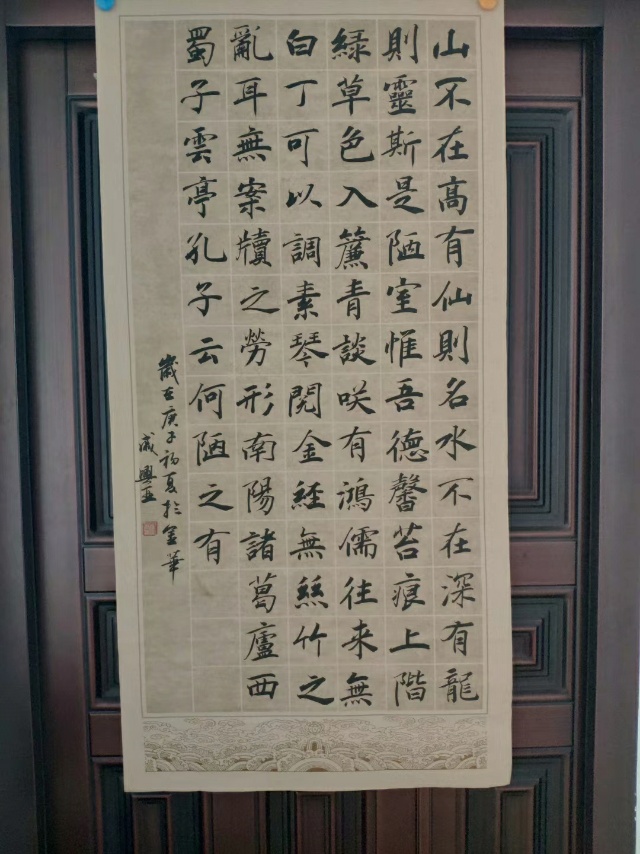 山不在高有仙則名水不在深有龍
則靈斯是陋室惟吾德馨苔痕上階
綠草色入簾青談咲有鴻儒往来無
白丁可以調素琴閱金經無絲竹之
亂耳無案牘之勞形南陽諸葛廬西
蜀子雲亭孔子云何陋之有
歲在庚子初夏於金華
興亚